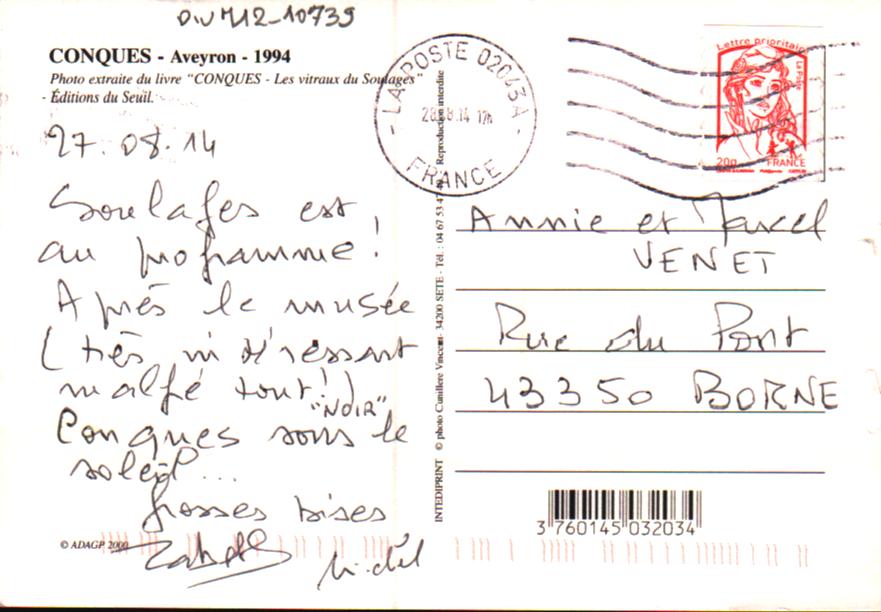 DIV M12_10739
CONQUES - Aveyron - 1994
Photo extraite du livre "CONQUES - Les vitraux du Soulages"
- Éditions du Seuil.
27.08.14
Soulages est
au programme !
Après le musée
(très intéressant
malgré tout !)
"NOIR"
Conques sous le
soleil...
Grosses bises
Michel
© ADAGP 2000
INTEDIPRINT © photo Cunillere Vincent - 34200 SETE - Tél. : 04 67 53 47
Reproduction interdite
- LA POSTE 02043A -
28.8.14 17h
FRANCE
Lettre prioritaire
La Poste
20g FRANCE
Annie et Marcel
VENET
Rue du Pont
43350 BORNE
3 760145 032034